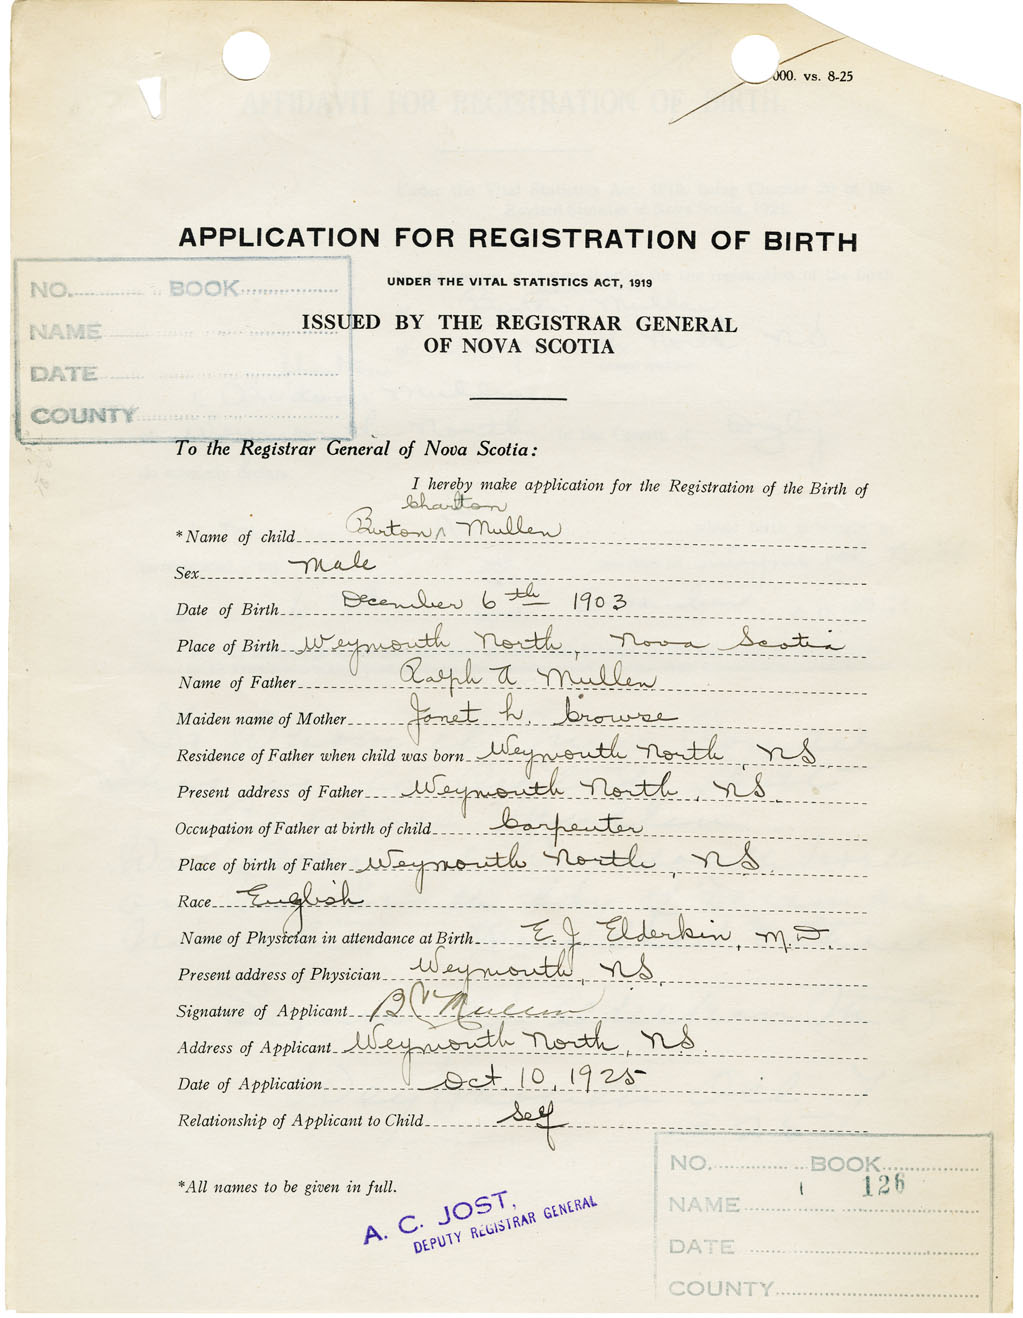 000. vs. 8-25
APPLICATION FOR REGISTRATION OF BIRTH
UNDER THE VITAL STATISTICS ACT, 1919
ISSUED BY THE REGISTRAR GENERAL
OF NOVA SCOTIA
NO. BOOK
NAME
DATE
COUNTY
To the Registrar General of Nova Scotia:
I hereby make application for the Registration of the Birth of
Charlton
*Name of child Burton ^ Mullen
Sex Male
Date of Birth December 6th 1903
Place of Birth Weymouth North, Nova Scotia
Name of Father Ralph A Mullen
Maiden name of Mother Janet h. Crowse
Residence of Father when child was born Weymouth North, NS
Present address of Father Weymouth North, NS.
Occupation of Father at birth of child Carpenter
Place of birth of Father Weymouth North, NS.
Race English
Name of Physician in attendance at Birth E. J Elderkin, M.D.
Present address of Physician Weymouth, NS.
Signature of Applicant B C Mullen
Address of Applicant Weymouth North, NS.
Date of Application Oct. 10, 1925
Relationship of Applicant to Child Self
*All names to be given in full.
A. C. JOST,
DEPUTY REGISTRAR GENERAL
NO. BOOK
126
NAME
DATE
COUNTY